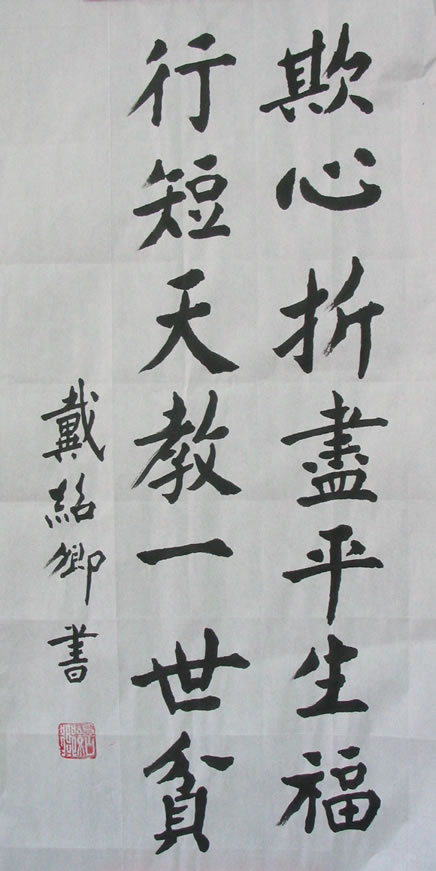 欺心折盡平生福
行短天教一世貧
戴紹卿書